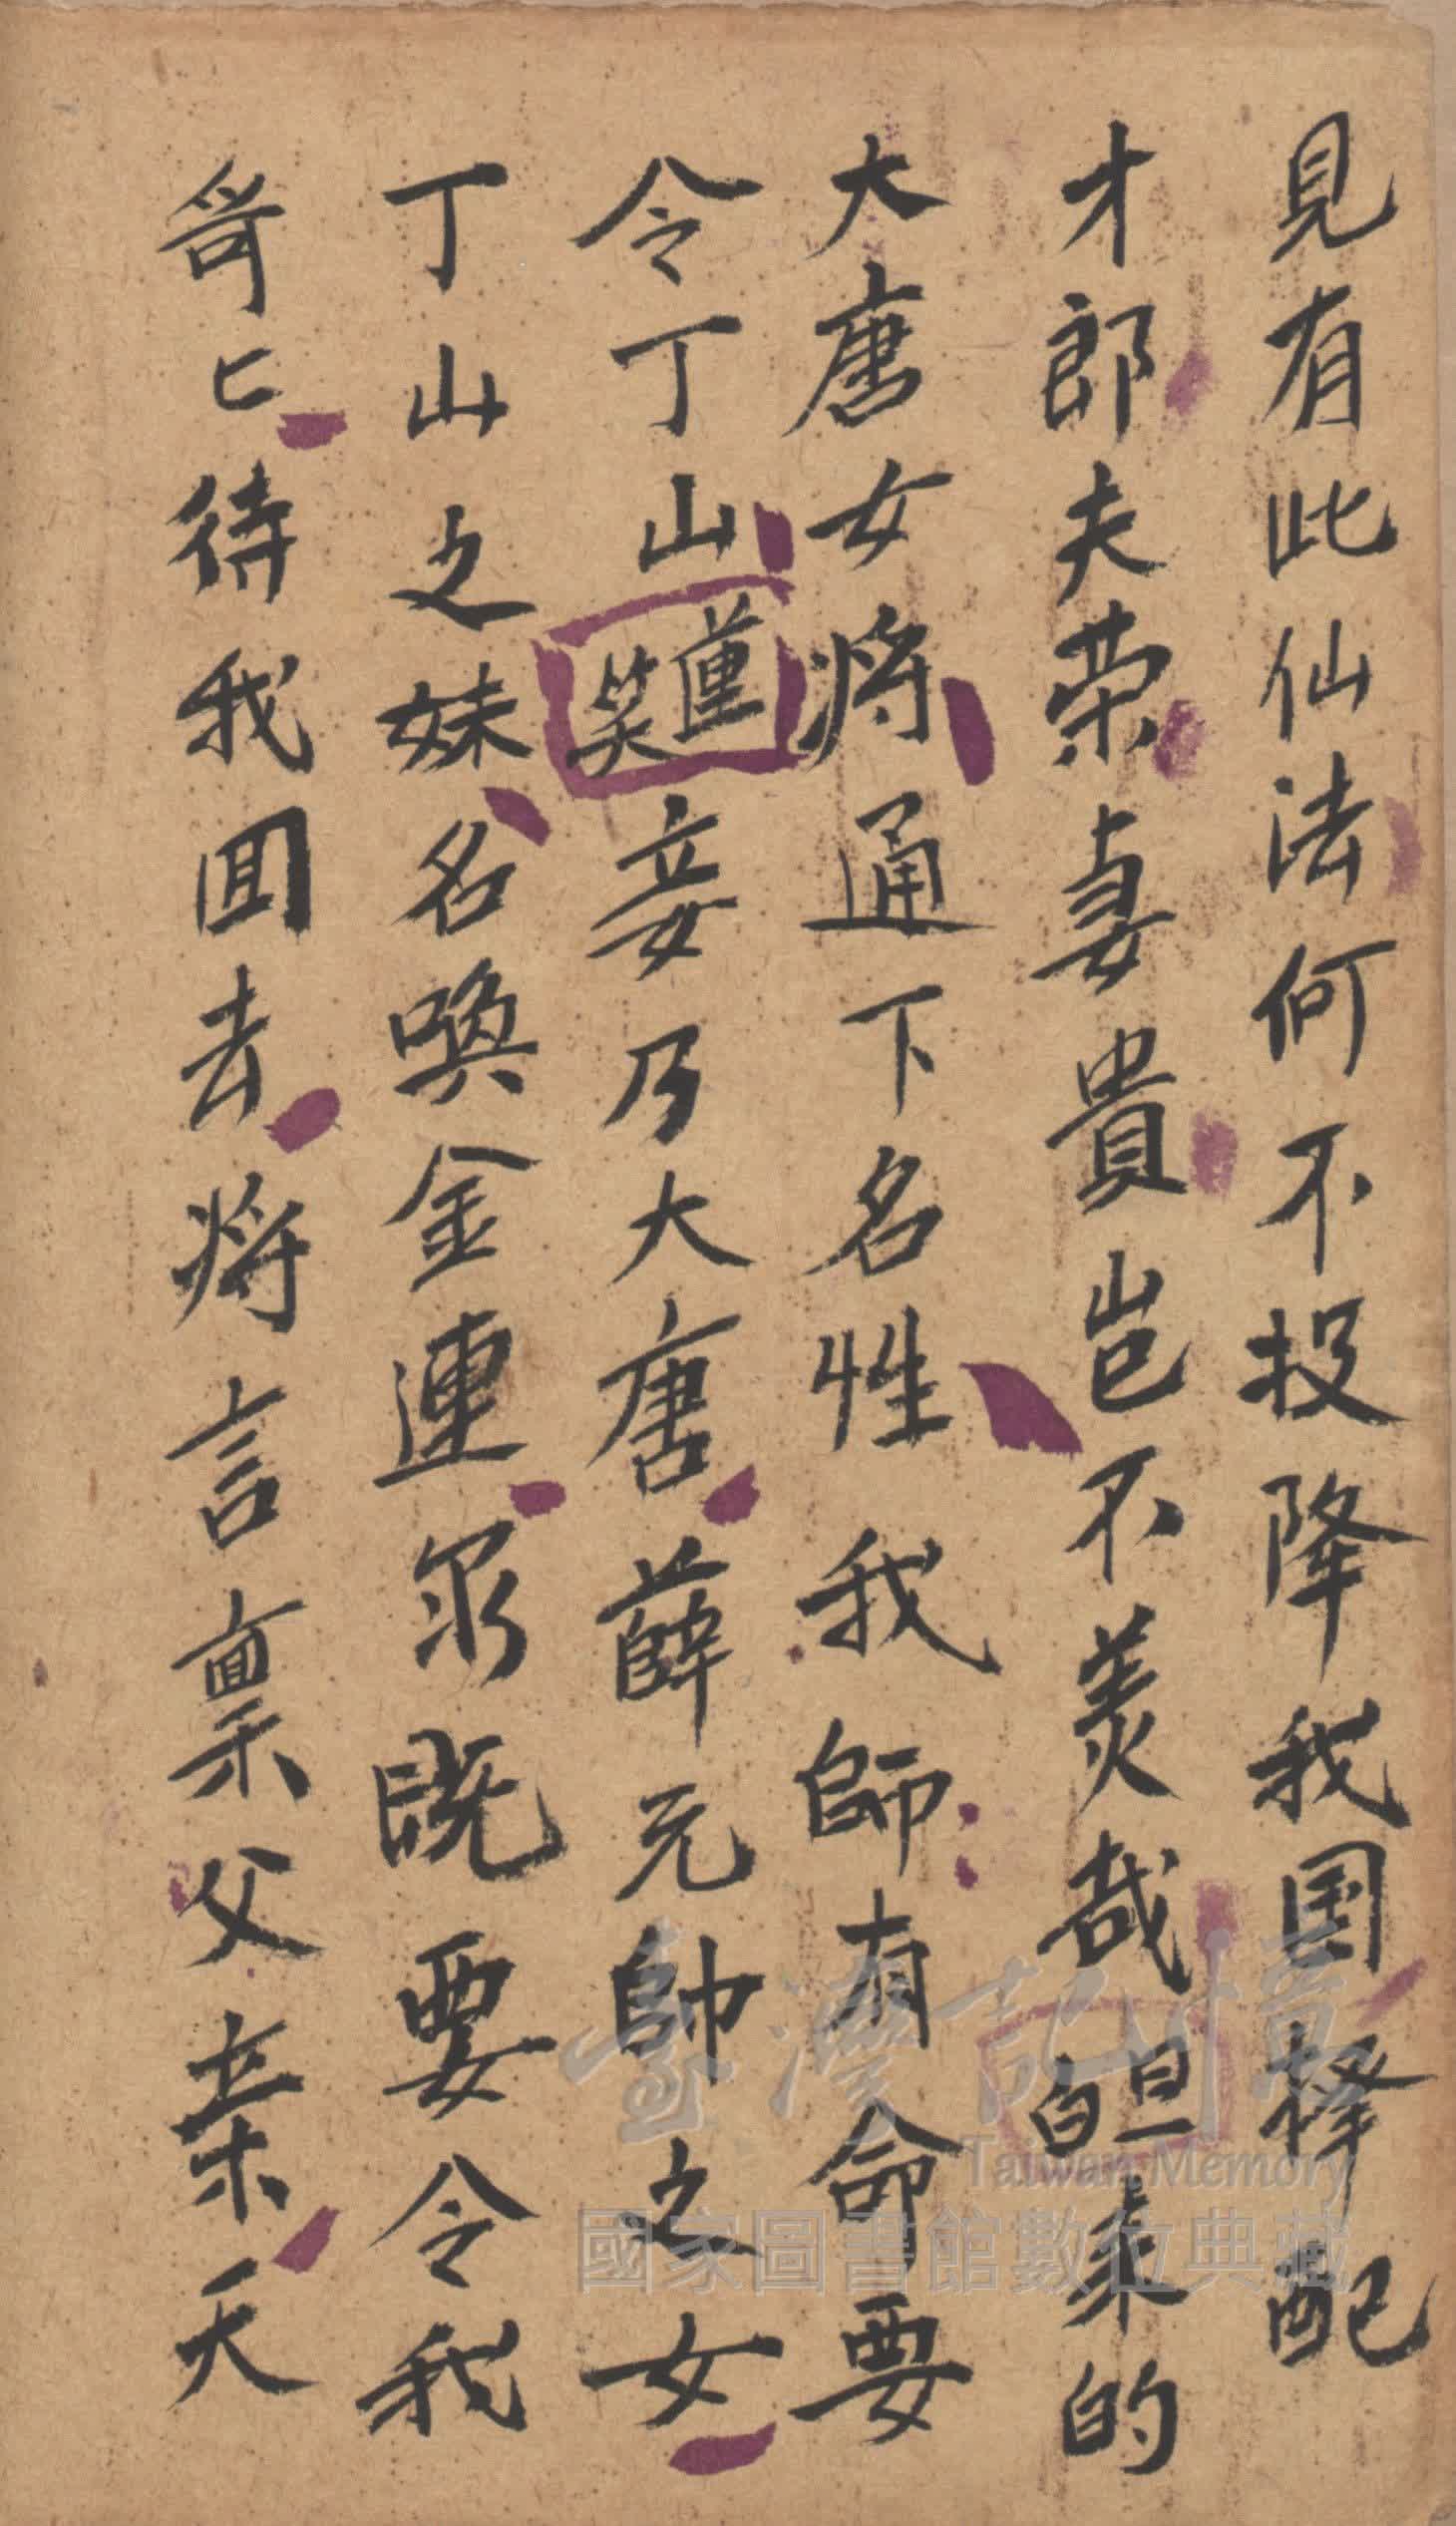 見有此仙法何不投降我国擇配
才郎夫荣妻貴岂不美哉旦白来的
大唐女将通下名性我師有命要
令丁山蓮笑妾乃大唐薛元帥之女
丁山之妹名喚金連尔既要令我
哥匕待我囬去将言禀父亲天
臺灣記憶
Taiwan Memory
國家圖書館數位典藏